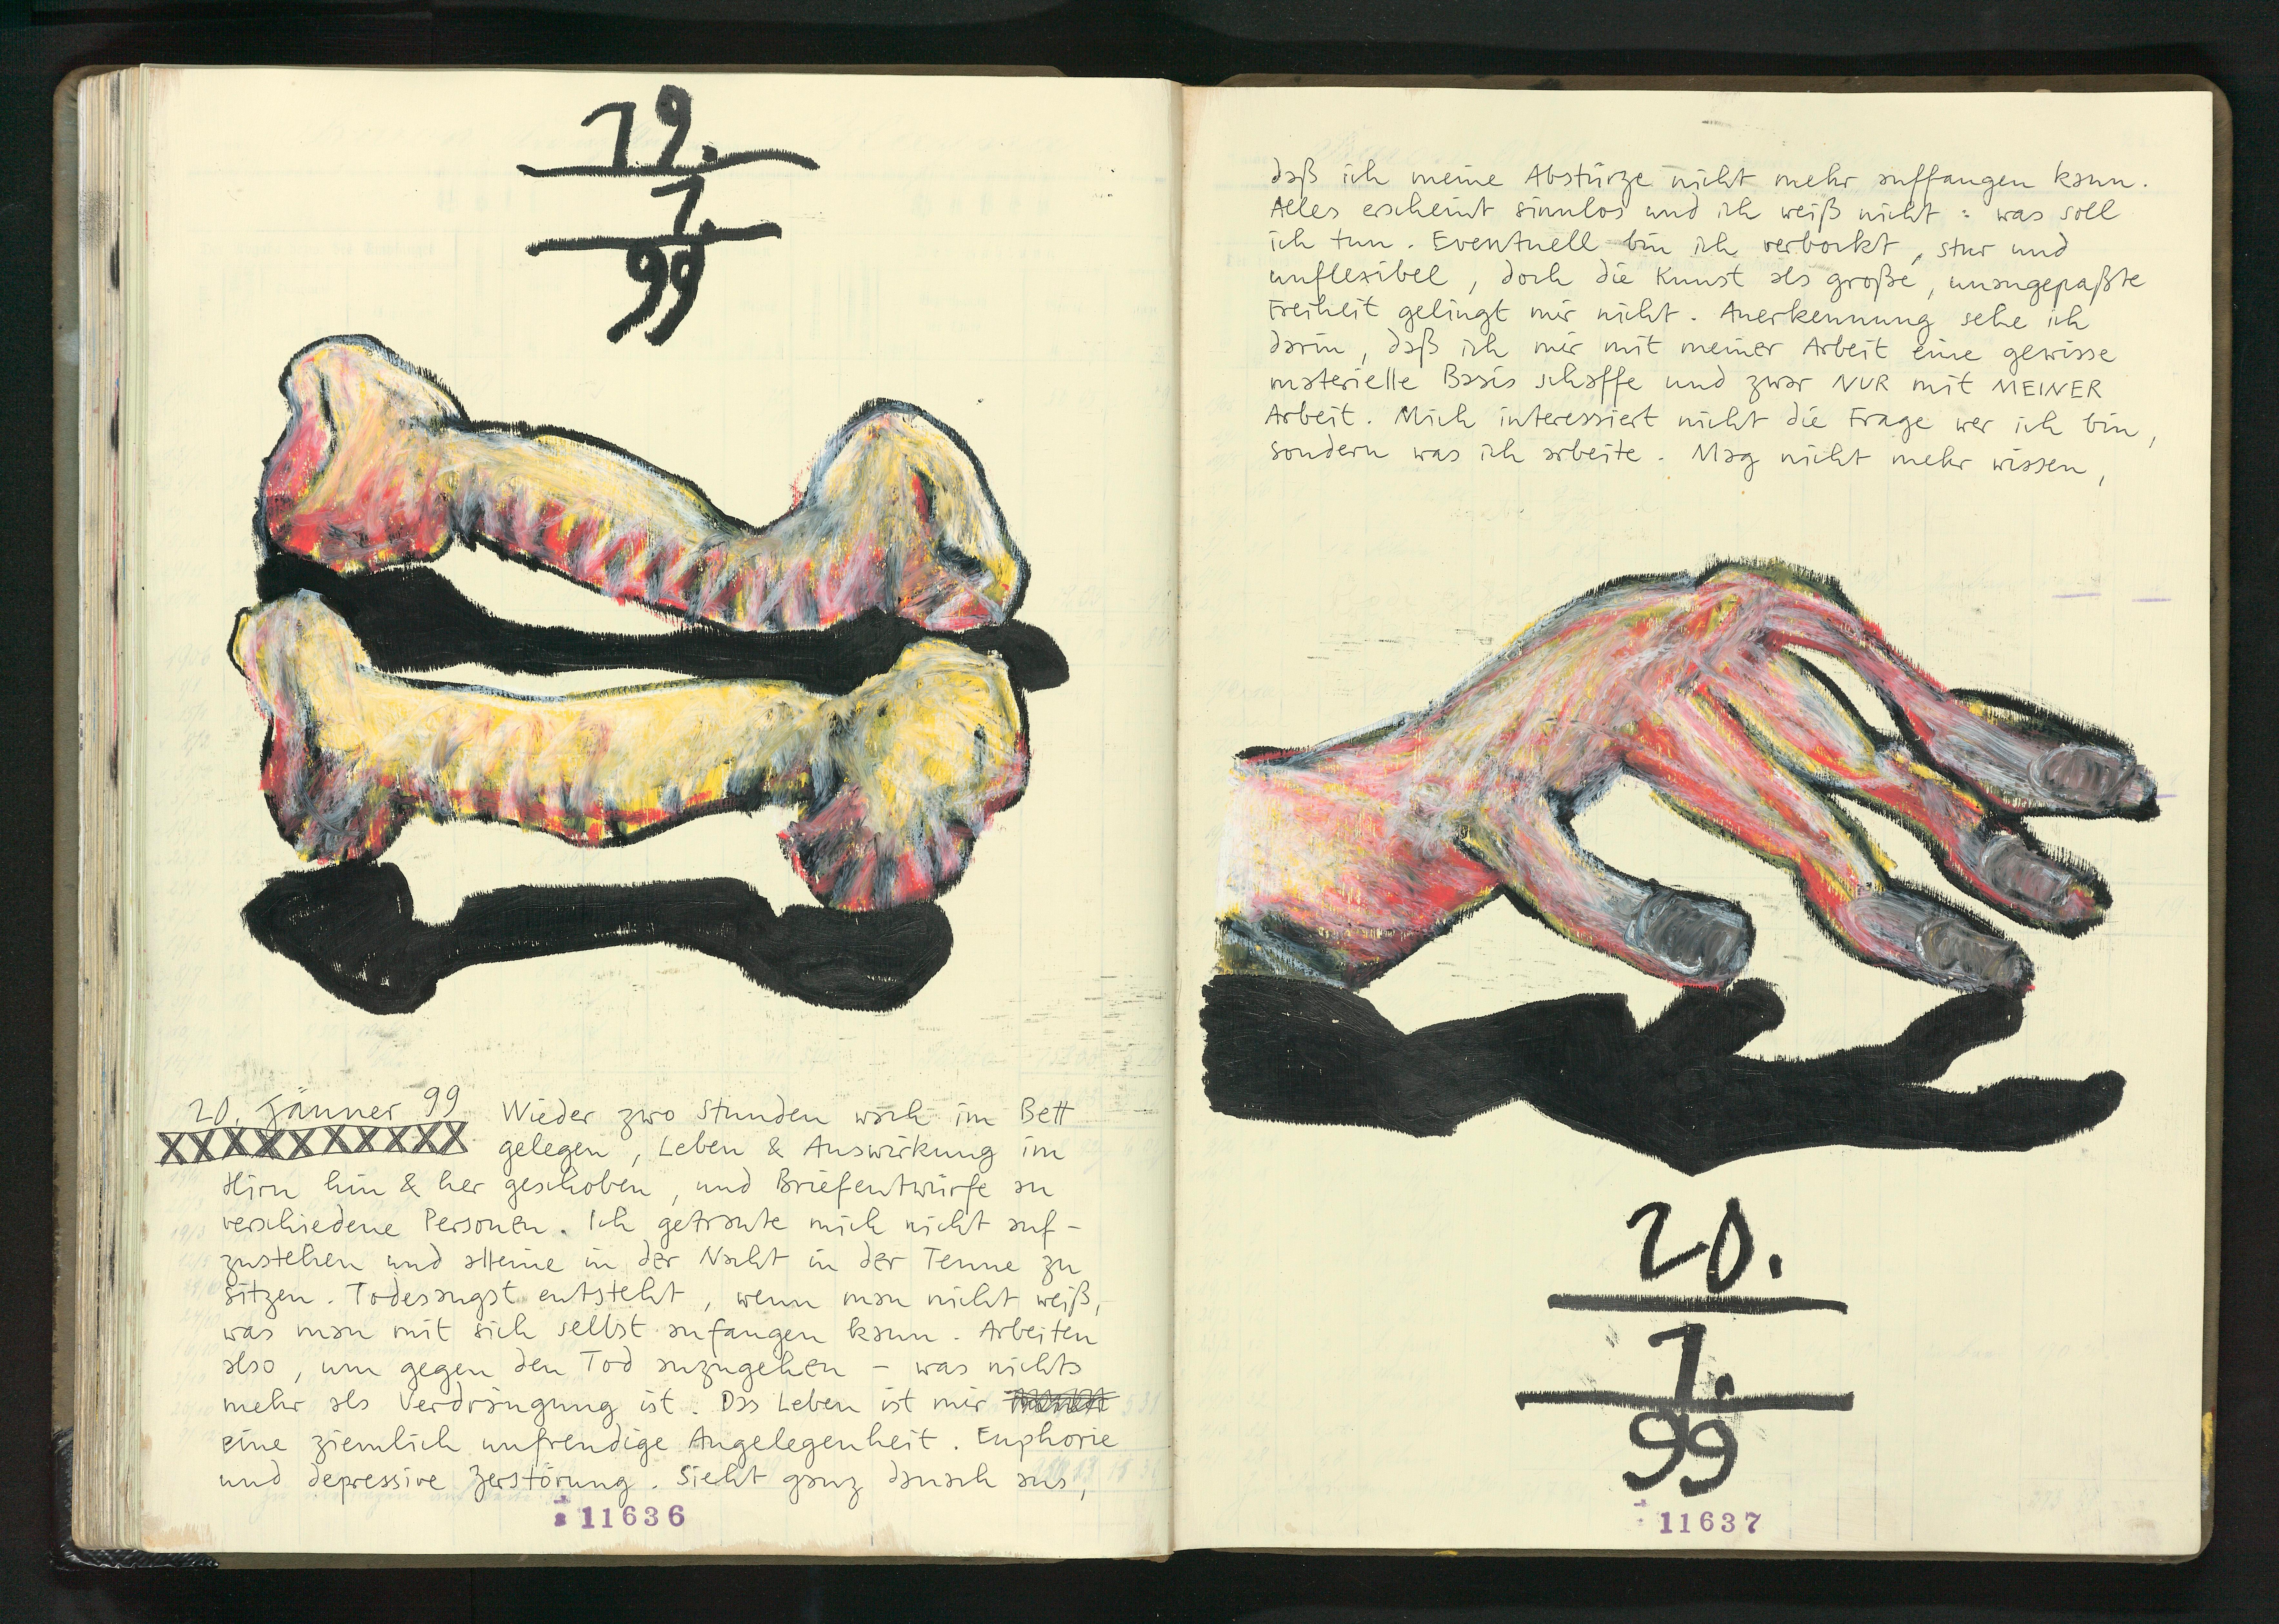 19.
1.
99
20. Jänner 99 Wieder zwo Stunden wach im Bett
gelegen, Leben & Auswirkung im
Hirn hin & her geschoben, und Briefentwürfe an
verschiedene Personen. Ich getraute mich nicht auf-
zustehen und alleine in der Nacht in der Tenne zu
sitzen. Todesangst entsteht, wenn man nicht weiß,
was man mit sich selbst anfangen kann. Arbeiten
also, um gegen den Tod anzugehen – was nichts
mehr als Verdrängung ist. Das Leben ist mir
eine ziemlich unfreudige Angelegenheit. Euphorie
und depressive Zerstörung. Sieht ganz danach aus,
11636
daß ich meine Abstürze nicht mehr auffangen kann.
Alles erscheint sinnlos und ich weiß nicht: was soll
ich tun. Eventuell bin ich verbockt, stur und
unflexibel, doch die Kunst als große, unangepaßte
Freiheit gelingt mir nicht. Anerkennung sehe ich
darin, daß ich mir mit meiner Arbeit eine gewisse
materielle Basis schaffe und zwar NUR mit MEINER
Arbeit. Mich interessiert nicht die Frage wer ich bin,
sondern was ich arbeite. Mag nicht mehr wissen,
20.
1.
99
11637